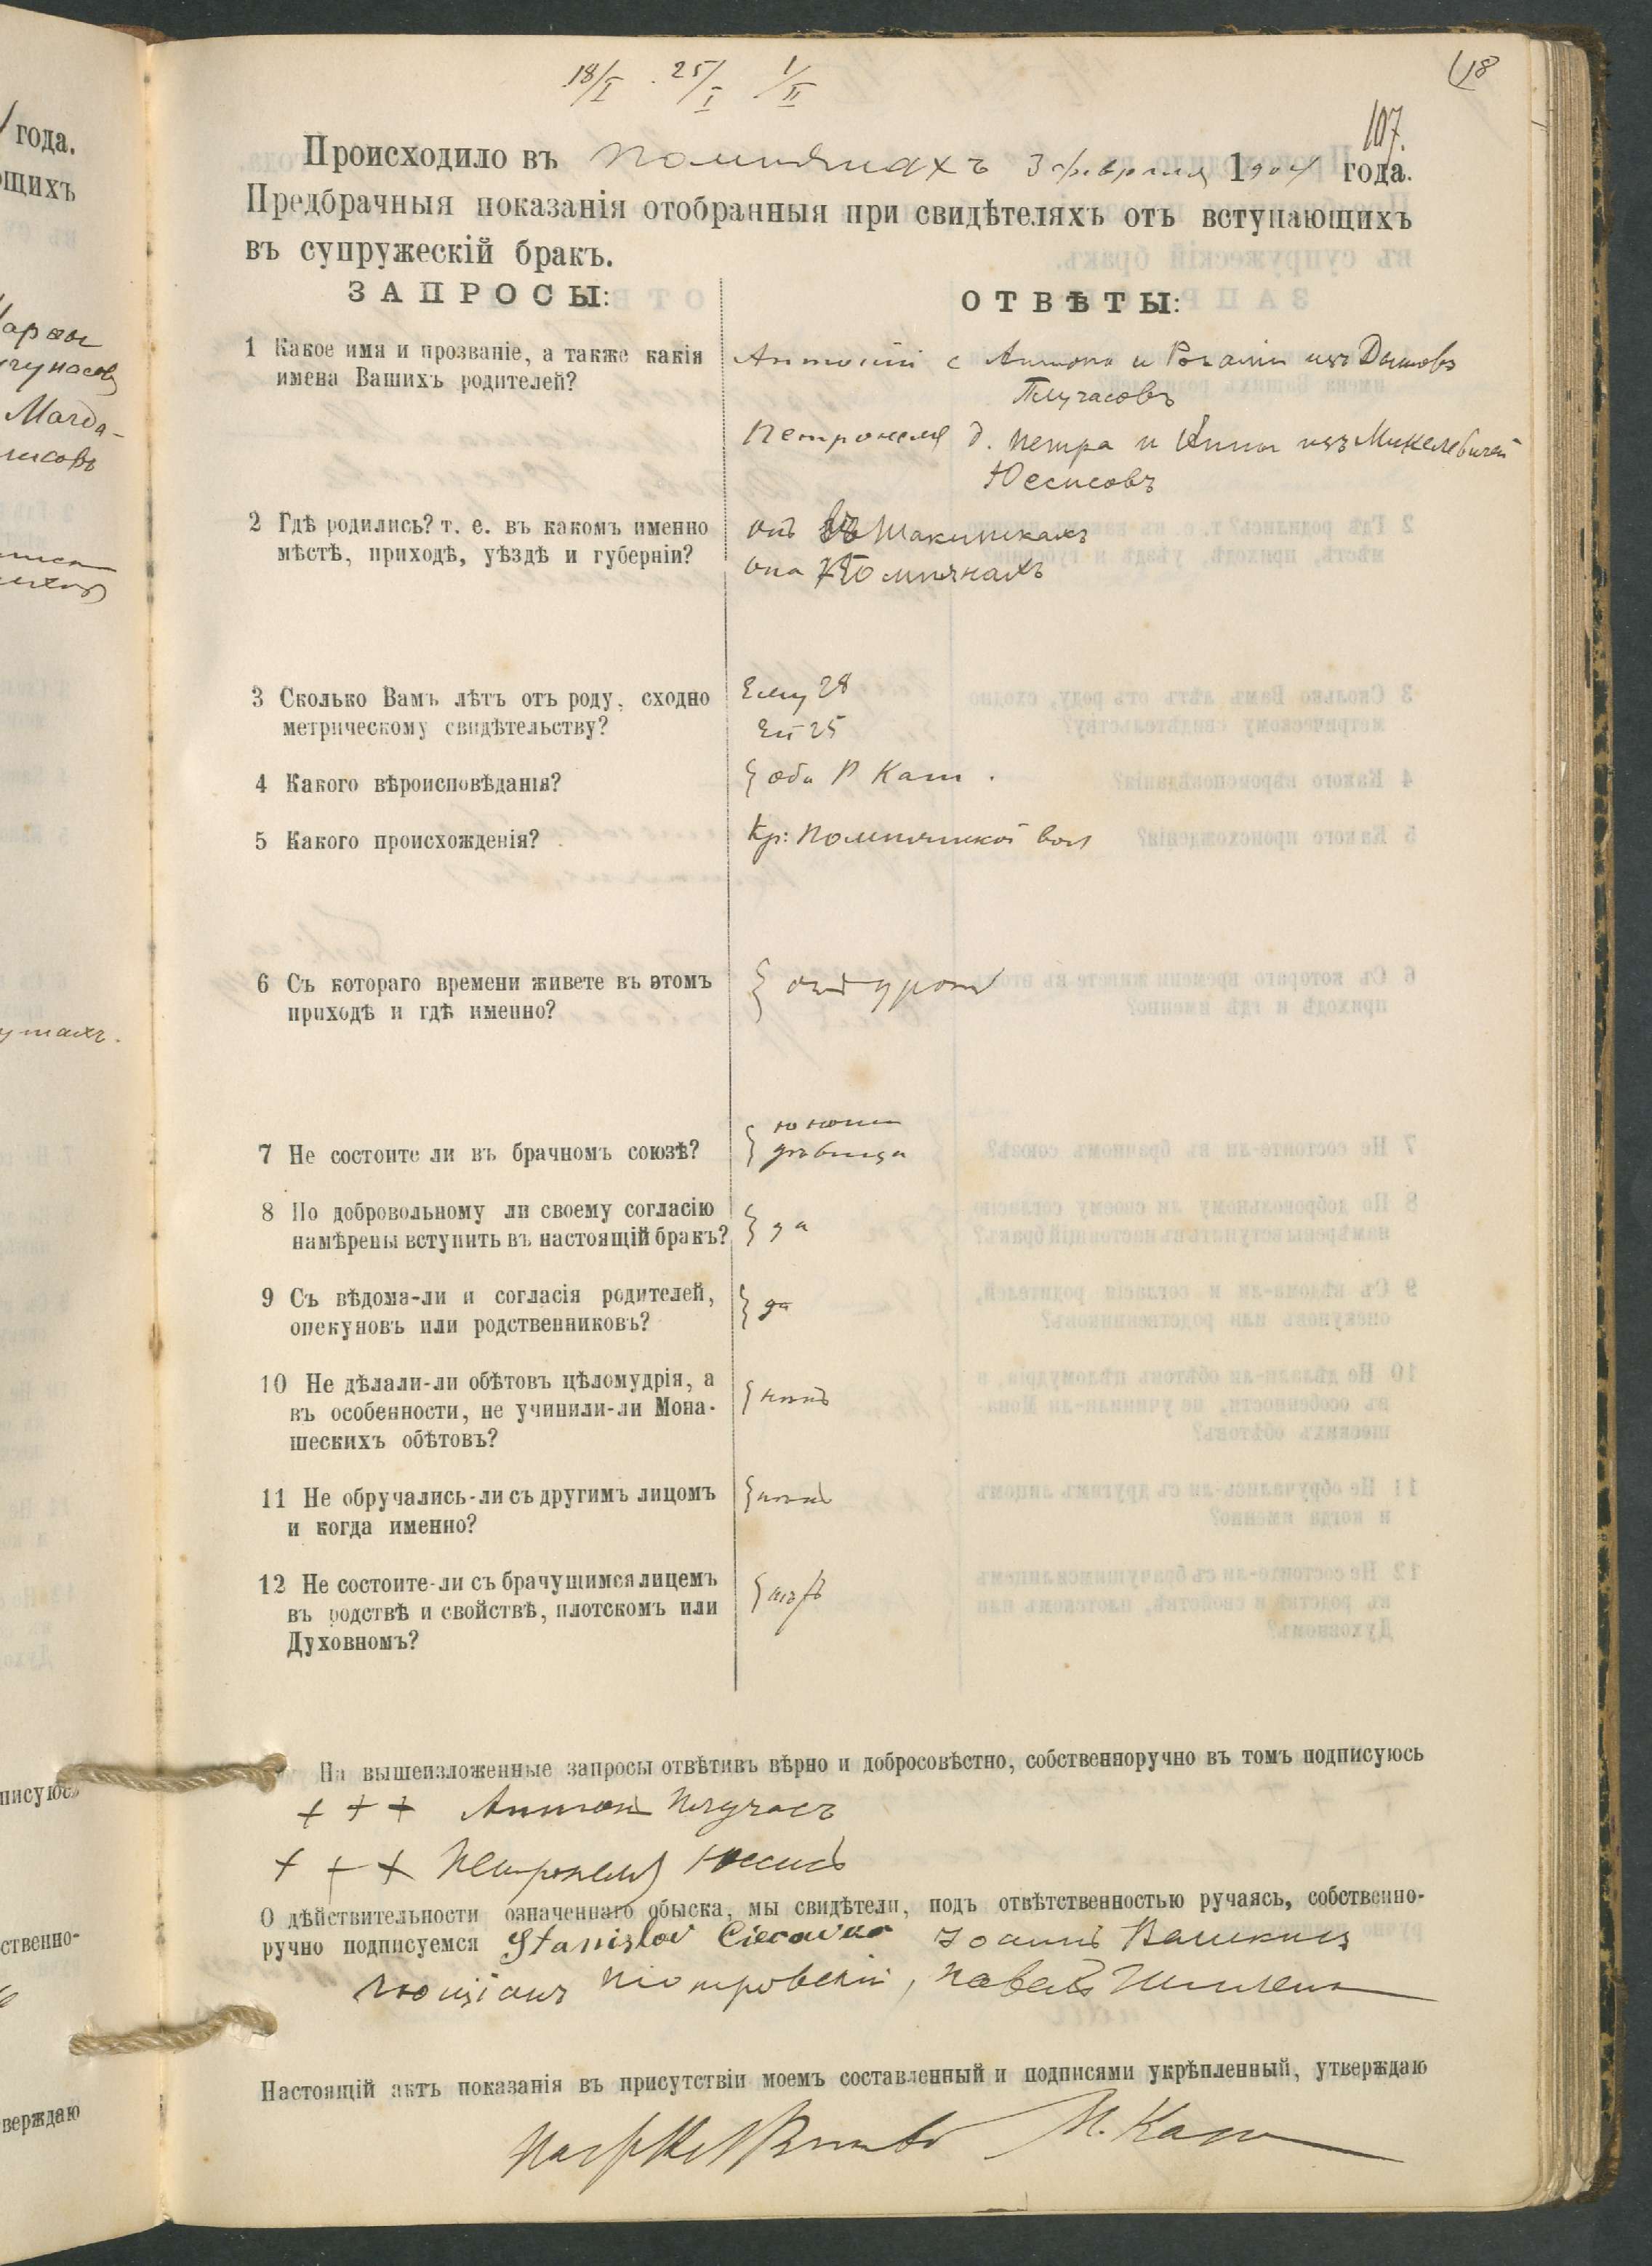 года.
ющихъ
18/I 25/I 1/II
18
107.
Происходило въ Помпянахъ 3 февраля 1904 года.
Предбрачныя показанія отобранныя при свидѣтеляхъ отъ вступающихъ
въ супружескій бракъ.
ЗАПРОСЫ:
ОТВѢТЫ:
1 Какое имя и прозваніе, а также какія
имена Вашихъ родителей?
Антоній с Антона и Розаліи изъ
Плучасовъ
Петронеля д. Петра и Анны изъ Микелевичей
Юесисовъ
2 Гдѣ родились? т. е. въ какомъ именно
мѣстѣ, приходѣ, уѣздѣ и губерніи?
онъ въ
она Помпянахъ
3 Сколько Вамъ лѣтъ отъ роду, сходно
метрическому свидѣтельству?
Ему 28
Ей 25
4 Какого вѣроисповѣданія?
оба Р Кат.
5 Какого происхожденія?
Кр: Помпянской вол
6 Съ котораго времени живете въ этомъ
приходѣ и гдѣ именно?
отъ урож
7 Не состоите ли въ брачномъ союзѣ?
юноша
дѣвица
8 По добровольному ли своему согласію
намѣрены вступить въ настоящій бракъ?
да
9 Съ вѣдома-ли и согласія родителей,
опекуновъ или родственниковъ?
да
10 Не дѣлали-ли обѣтовъ цѣломудрія, а
въ особенности, не учинили-ли Мона-
шескихъ обѣтовъ?
нѣтъ
11 Не обручались-ли съ другимъ лицомъ
и когда именно?
нѣтъ
12 Не состоите-ли съ брачущимся лицемъ
въ родствѣ и свойствѣ, плотскомъ или
Духовномъ?
нѣтъ
На вышеизложенные запросы отвѣтивъ вѣрно и добросовѣстно, собственноручно въ томъ подписуюсь
+ + + Антоній Плучасъ
+ + + Петронеля Юесисъ
О дѣйствительности означеннаго обыска, мы свидѣтели, подъ отвѣтственностью ручаясь, собственно-
ручно подписуемся Stanislov Іоаннъ
Люціанъ Піотровскій, Павелъ
Настоящій актъ показанія въ присутствіи моемъ составленный и подписями укрѣпленный, утверждаю